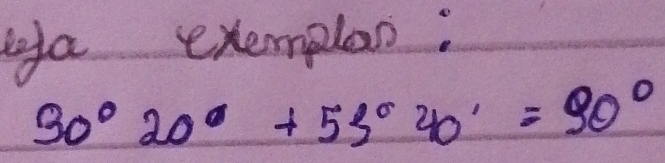 eja exemplos :
30° 20° + 53° 40' = 90°